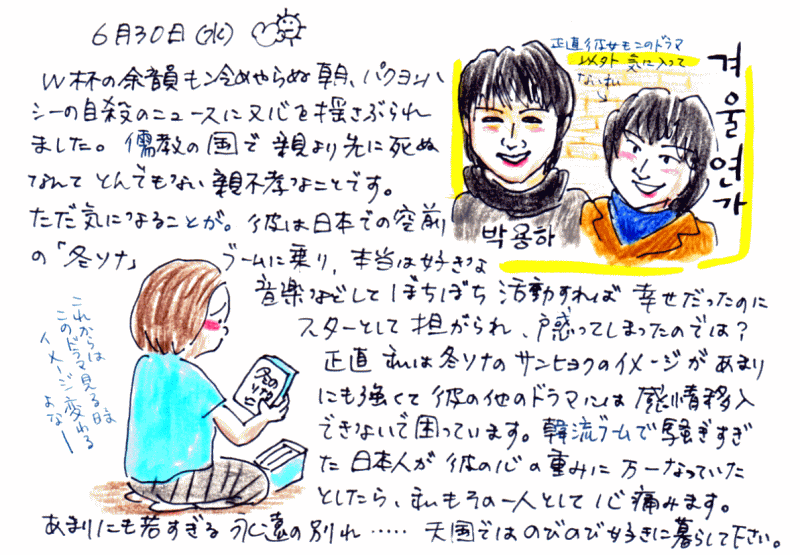 6月30日(水)
W杯の余韻も冷めやらぬ朝、パクヨンハ
シーの自殺のニュースに又心を揺さぶられ
ました。儒教の国で親より先に死ぬ
なんてとんでもない親不孝なことです。
ただ気になることが。彼は日本での空前
の「冬ソナ」ブームに乗り、本当は好きな
音楽などしてぼちぼち活動すれば幸せだったのに
スターとして担がられ、惑ってしまったのでは?
正直私は冬ソナのサンヒョクのイメージがあまり
にも強くて彼の他のドラマには感情移入
できないで困っています。韓流ブームで騒ぎすぎ
た日本人が彼の心の重みに万一なっていた
としたら、私もその一人として心痛みます。
あまりにも若すぎる永遠の別れ……天国ではのびのび好きに暮らして下さい。
正直彼女もこのドラマ
以外気に入って
ないわ
겨울연가
박용하
冬のソナタ
これからは
このドラマ見る時は
イメージ変わる
よなー